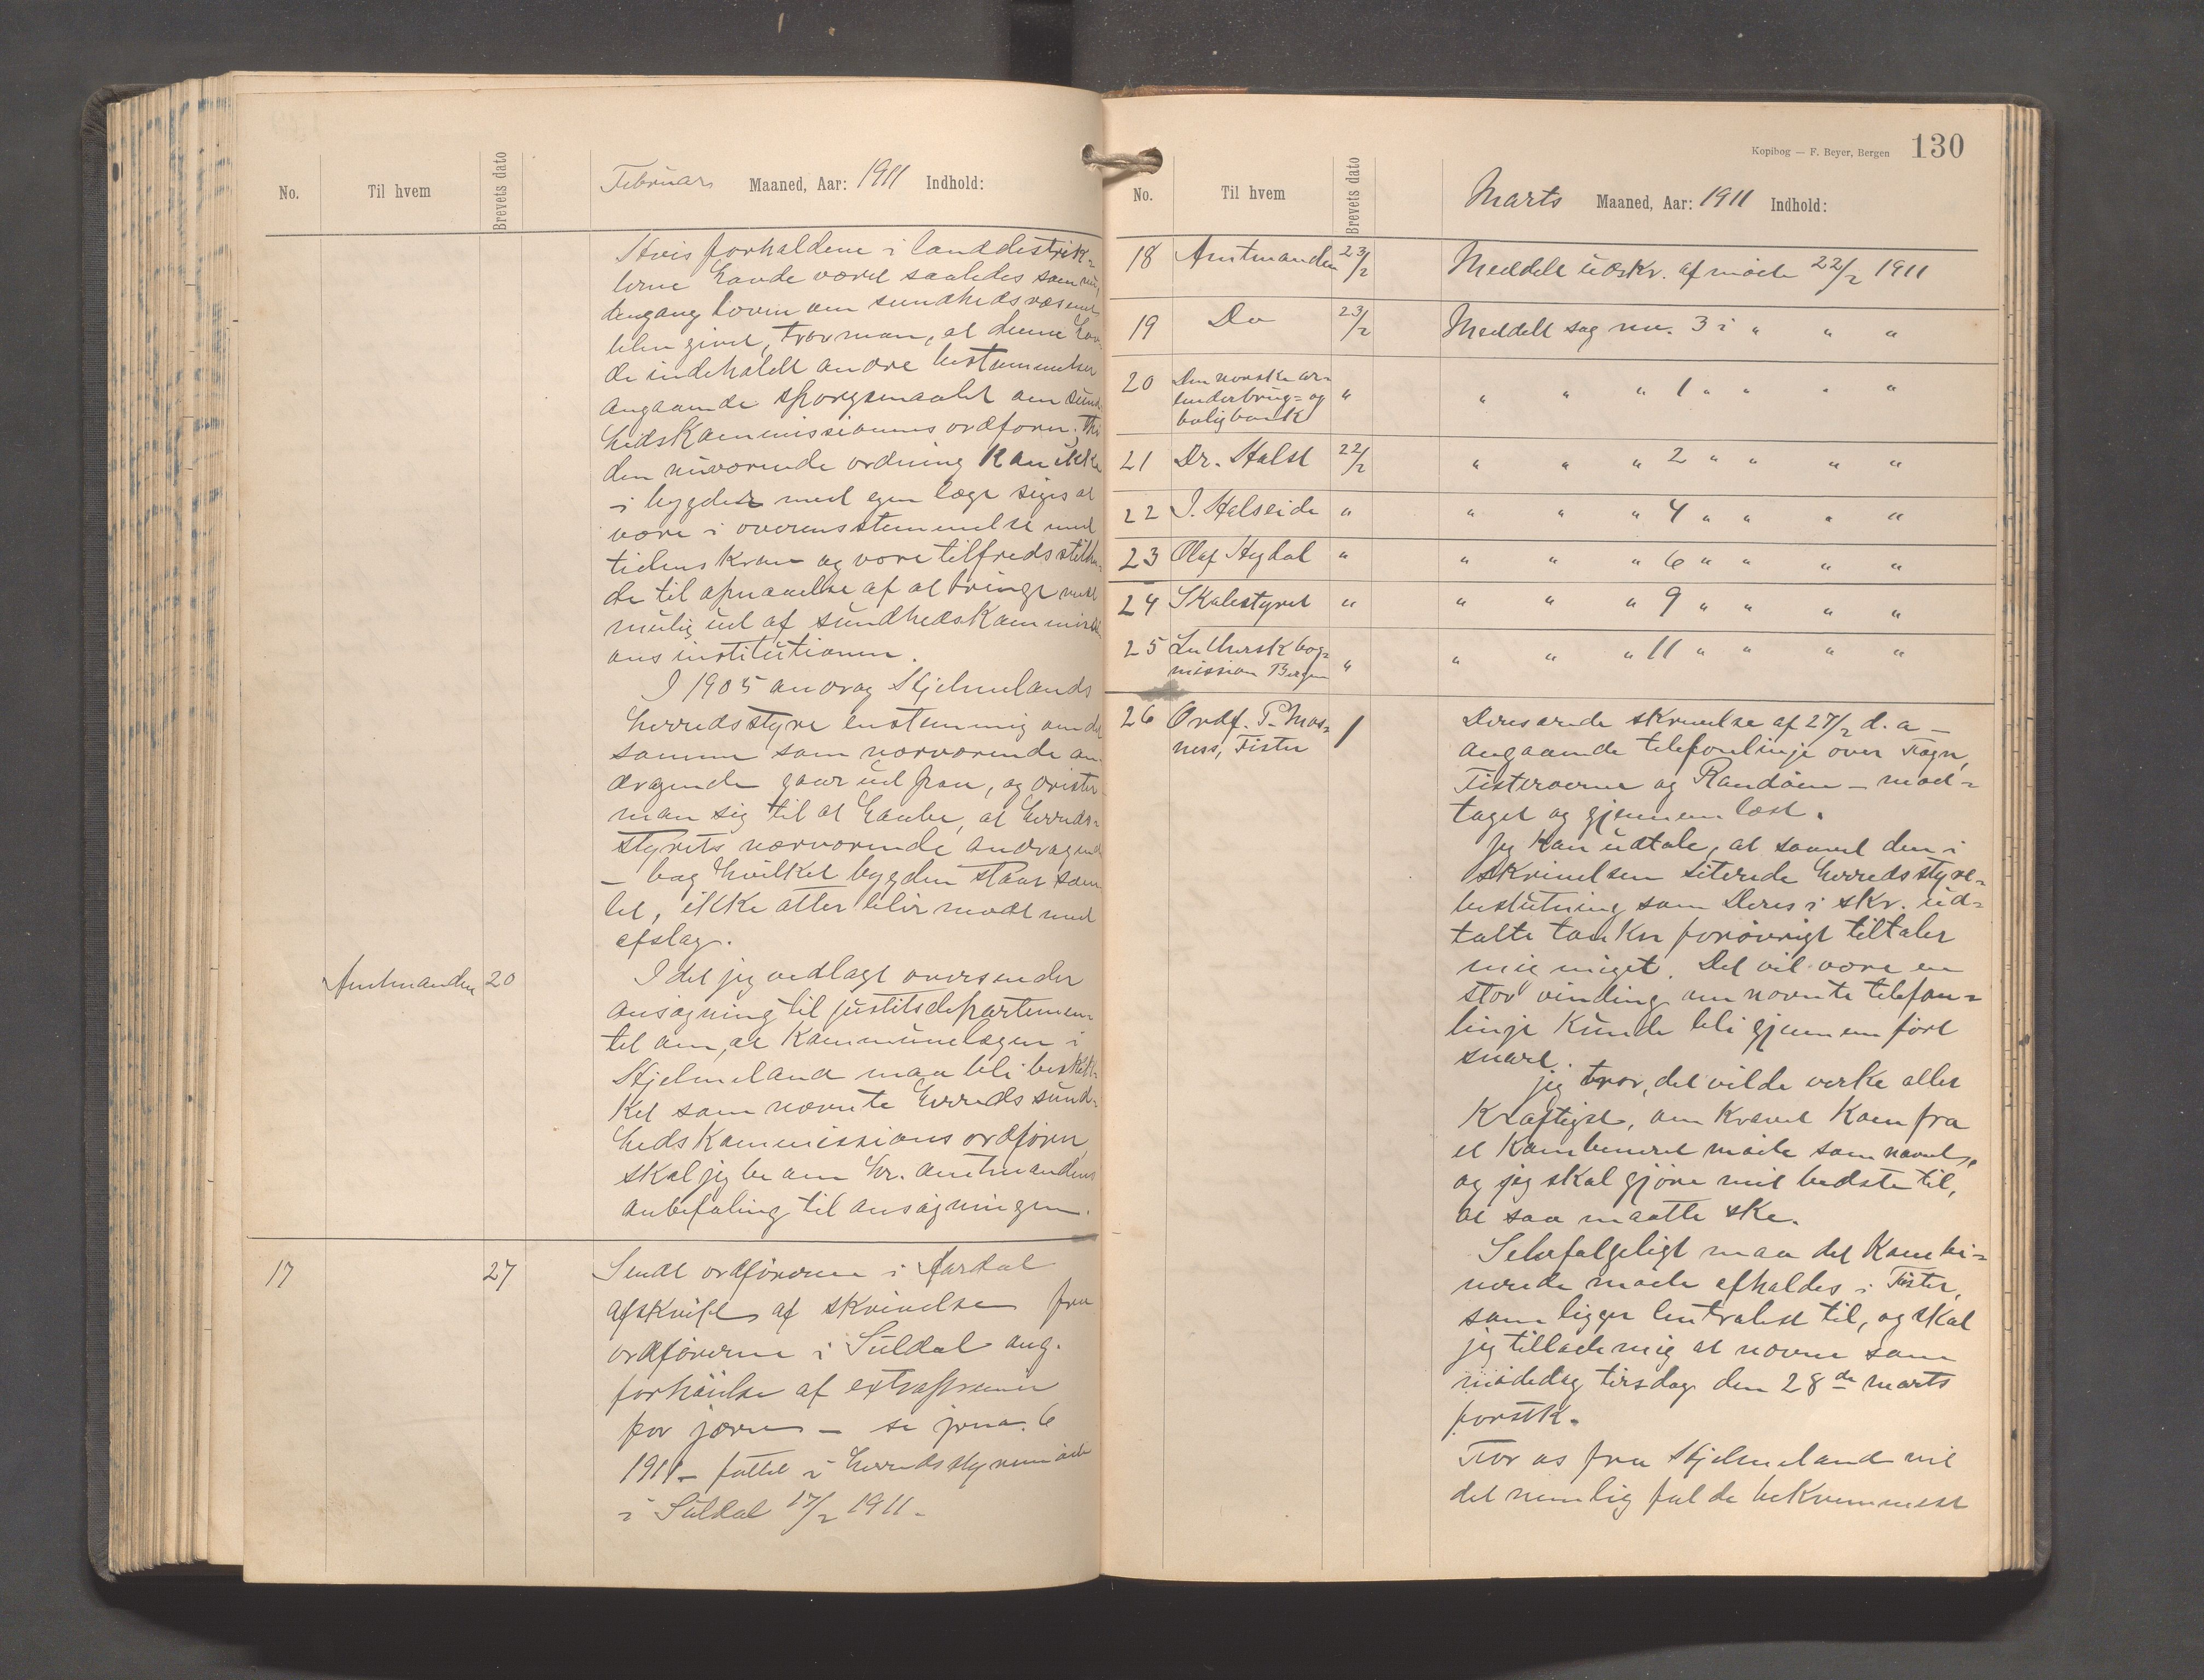 No.
Til hvem
Brevets dato
Februar Maaned, Aar: 1911 Indhold:
Hvis forholdene i landdistrik-
terne havde været saaledes som nu,
dengang loven om sundhedsvæsenet
blev givet, tror man, at denne hav-
de indeholdt andre bestemmelser
angaaende spørgsmaalet om sund-
hedskommissionens ordfører; thi
den nuværende ordning kan ikke
i bygder med egen læge siges at
være i overensstemmelse med
tidens krav og være tilfredsstillen-
de til opnaaelse af at bringe mest
mulig ud af sundhedskommissi-
ons institutionen.
I 1905 androg Hjelmelands
herredsstyre enstemmig om det
samme som nærværende an-
dragende gaar ud paa, og trøster
man sig til at haabe, at herreds-
styrets nærværende andragende
– bag hvilket bygden staar sam-
let, ikke atter blir mødt med
afslag.
Amtmanden 20
Idet jeg vedlagt oversender
ansøgning til justitsdepartemen-
tet om, at kommunelægen i
Hjelmeland maa bli beskik-
ket som nævnte herreds sund-
hedskommissions ordfører,
skal jeg be om hr. amtmandens
anbefaling til ansøgningen.
17 27
Sendt ordføreren i Aardal
afskrift af skrivelse fra
ordføreren i Suldal ang.
forhøielse af
for – se jrno. 6
1911 – fattet i herredsstyremøde
i Suldal 17/2 1911.
Kopibog — F. Beyer, Bergen 130
No.
Til hvem
Brevets dato
Marts Maaned, Aar: 1911 Indhold:
18 Amtmanden 23/2 Meddelt udskr. af møde 22/2 1911
19 Do 23/2 Meddelt sag no. 3 i " " "
20 Den norske ar-
beiderbrug- og
boligbank " " " " 1 " " " "
21 Dr. Holst 22/2 " " " 2 " " " "
22 J. Halseide " " " " 4 " " " "
23 Olaf Hydal " " " " 6 " " " "
24 Skolestyret " " " " 9 " " " "
25 Luthersk bog-
mission Bergen " " " " 11 " " " "
26 Ordf. P. Mos-
ness, Fister 1
Deres ærede skrivelse af 27/2 d. a. –
angaaende telefonlinje over Fogn,
Fisterøerne og Randøen – mod-
taget og gjennemlæst.
Jeg kan udtale, at saavel den i
skrivelsen siterede herredsstyre-
beslutning som Deres i skr. ud-
talte tanker forøvrigt tiltaler
mig meget. Det vil være en
stor vinding om nævnte telefon-
linje kunde bli gjennemført
snart.
Jeg tror, det vilde virke aller
kraftigst, om kravet kom fra
et kombineret møde som nævnt,
og jeg skal gjøre mit bedste til,
at saa maatte ske.
Selvfølgeligt maa det kombi-
nerede møde afholdes i Fister,
som ligger centralest til, og skal
jeg tillade mig at nævne som
mødedag tirsdag den 28de marts
førstk.
For os fra Hjelmeland vil
det nemlig falde bekvemmest